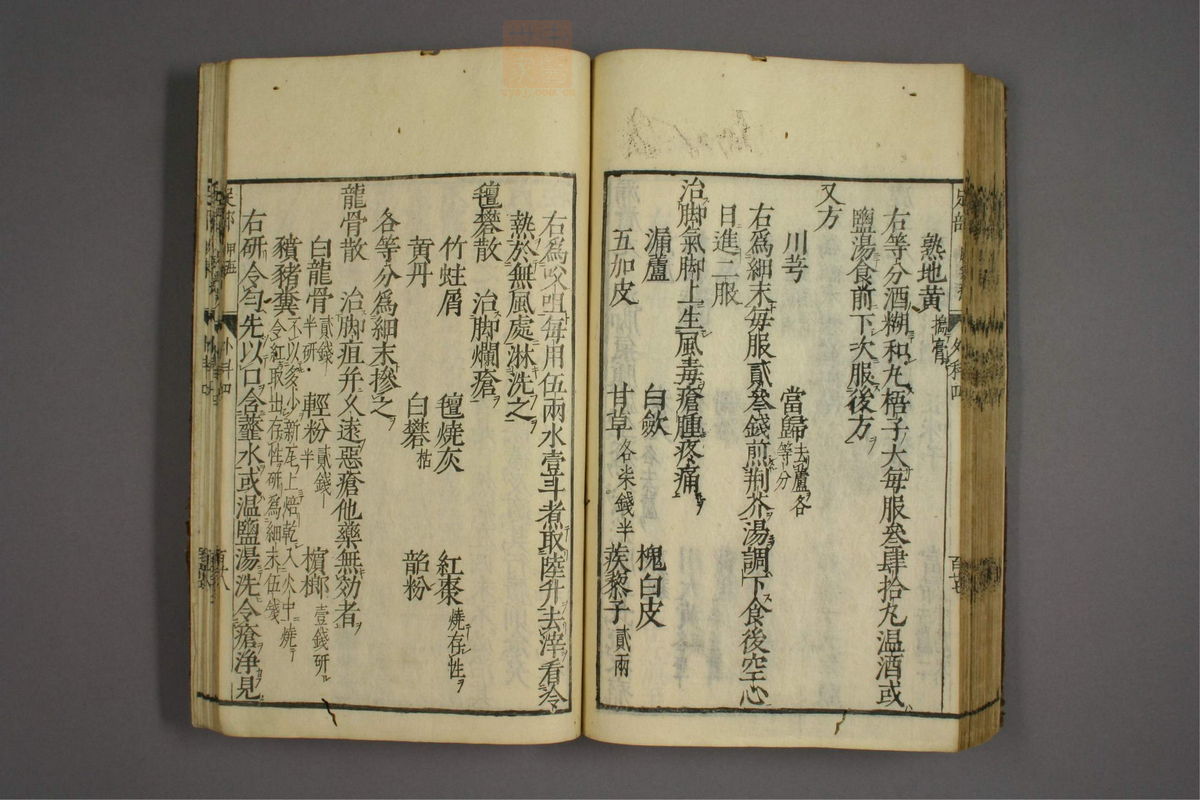 熟地黄搗膏
右等分酒糊和丸梧子大每服叁肆拾丸温酒或
鹽湯食前下次服後方
又方
川芎 當歸去蘆各等分
右爲細末每服貳叁錢煎荆芥湯調下食後空心
日進二服
治脚氣脚上生風毒瘡腫疼痛
漏蘆 白斂 槐白皮
五加皮 甘草各柒錢半 蒺藜子貳兩
右爲㕮咀每用伍兩水壹斗煮取陸升去滓看冷
熱於無風處淋洗之
氊礬散 治脚爛瘡
竹蛀屑 氊燒灰 紅棗燒存性
黄丹 白礬枯 韶粉
各等分爲細末摻之
龍骨散 治脚疽并久遠惡瘡他藥無効者
白龍骨貳錢半研 輕粉貳錢半 檳榔壹錢研
豶猪糞不以多少新瓦上焙乾入火中燒令紅取出存性研爲細末伍錢
右研令匀先以口含虀水或温鹽湯洗令瘡浄見